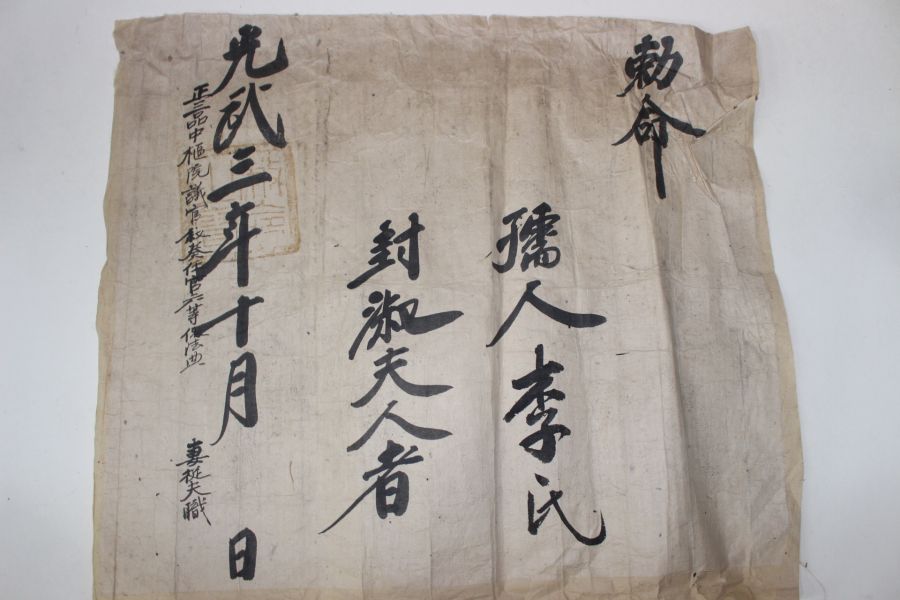 勅命
孺人李氏
封淑夫人者
光武三年十月 日
正三品中樞院議官敍奏任官六等依法典
妻從夫職